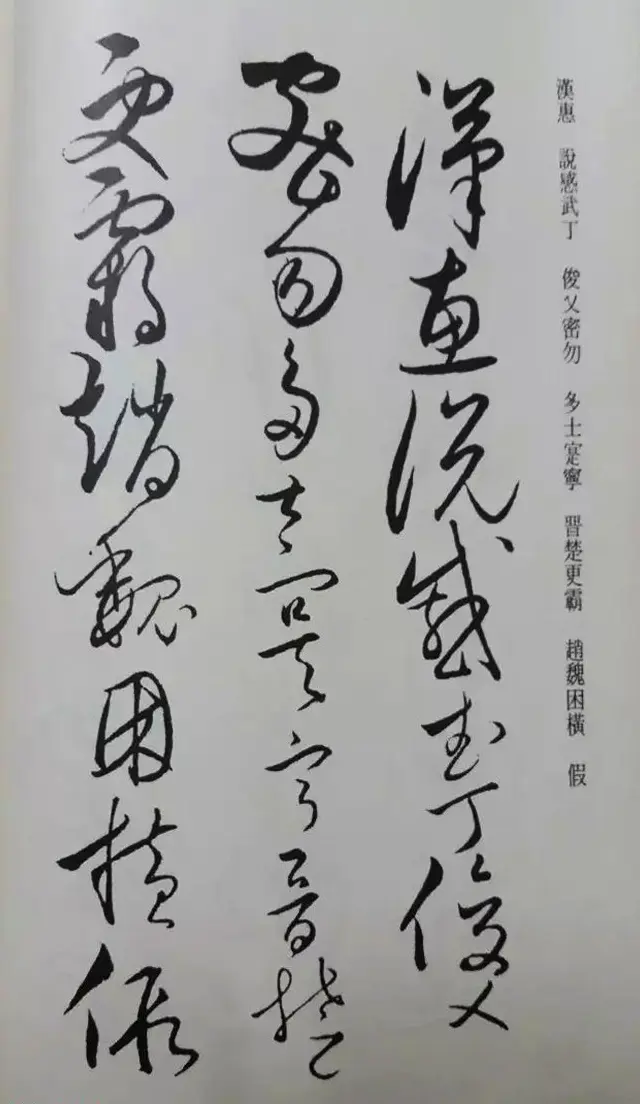 漢惠 說感武丁 俊乂密勿 多士寔寧 晉楚更霸 趙魏困橫 假
漢惠說感武丁俊乂
密勿多士寔寧晉楚
更霸趙魏困橫假